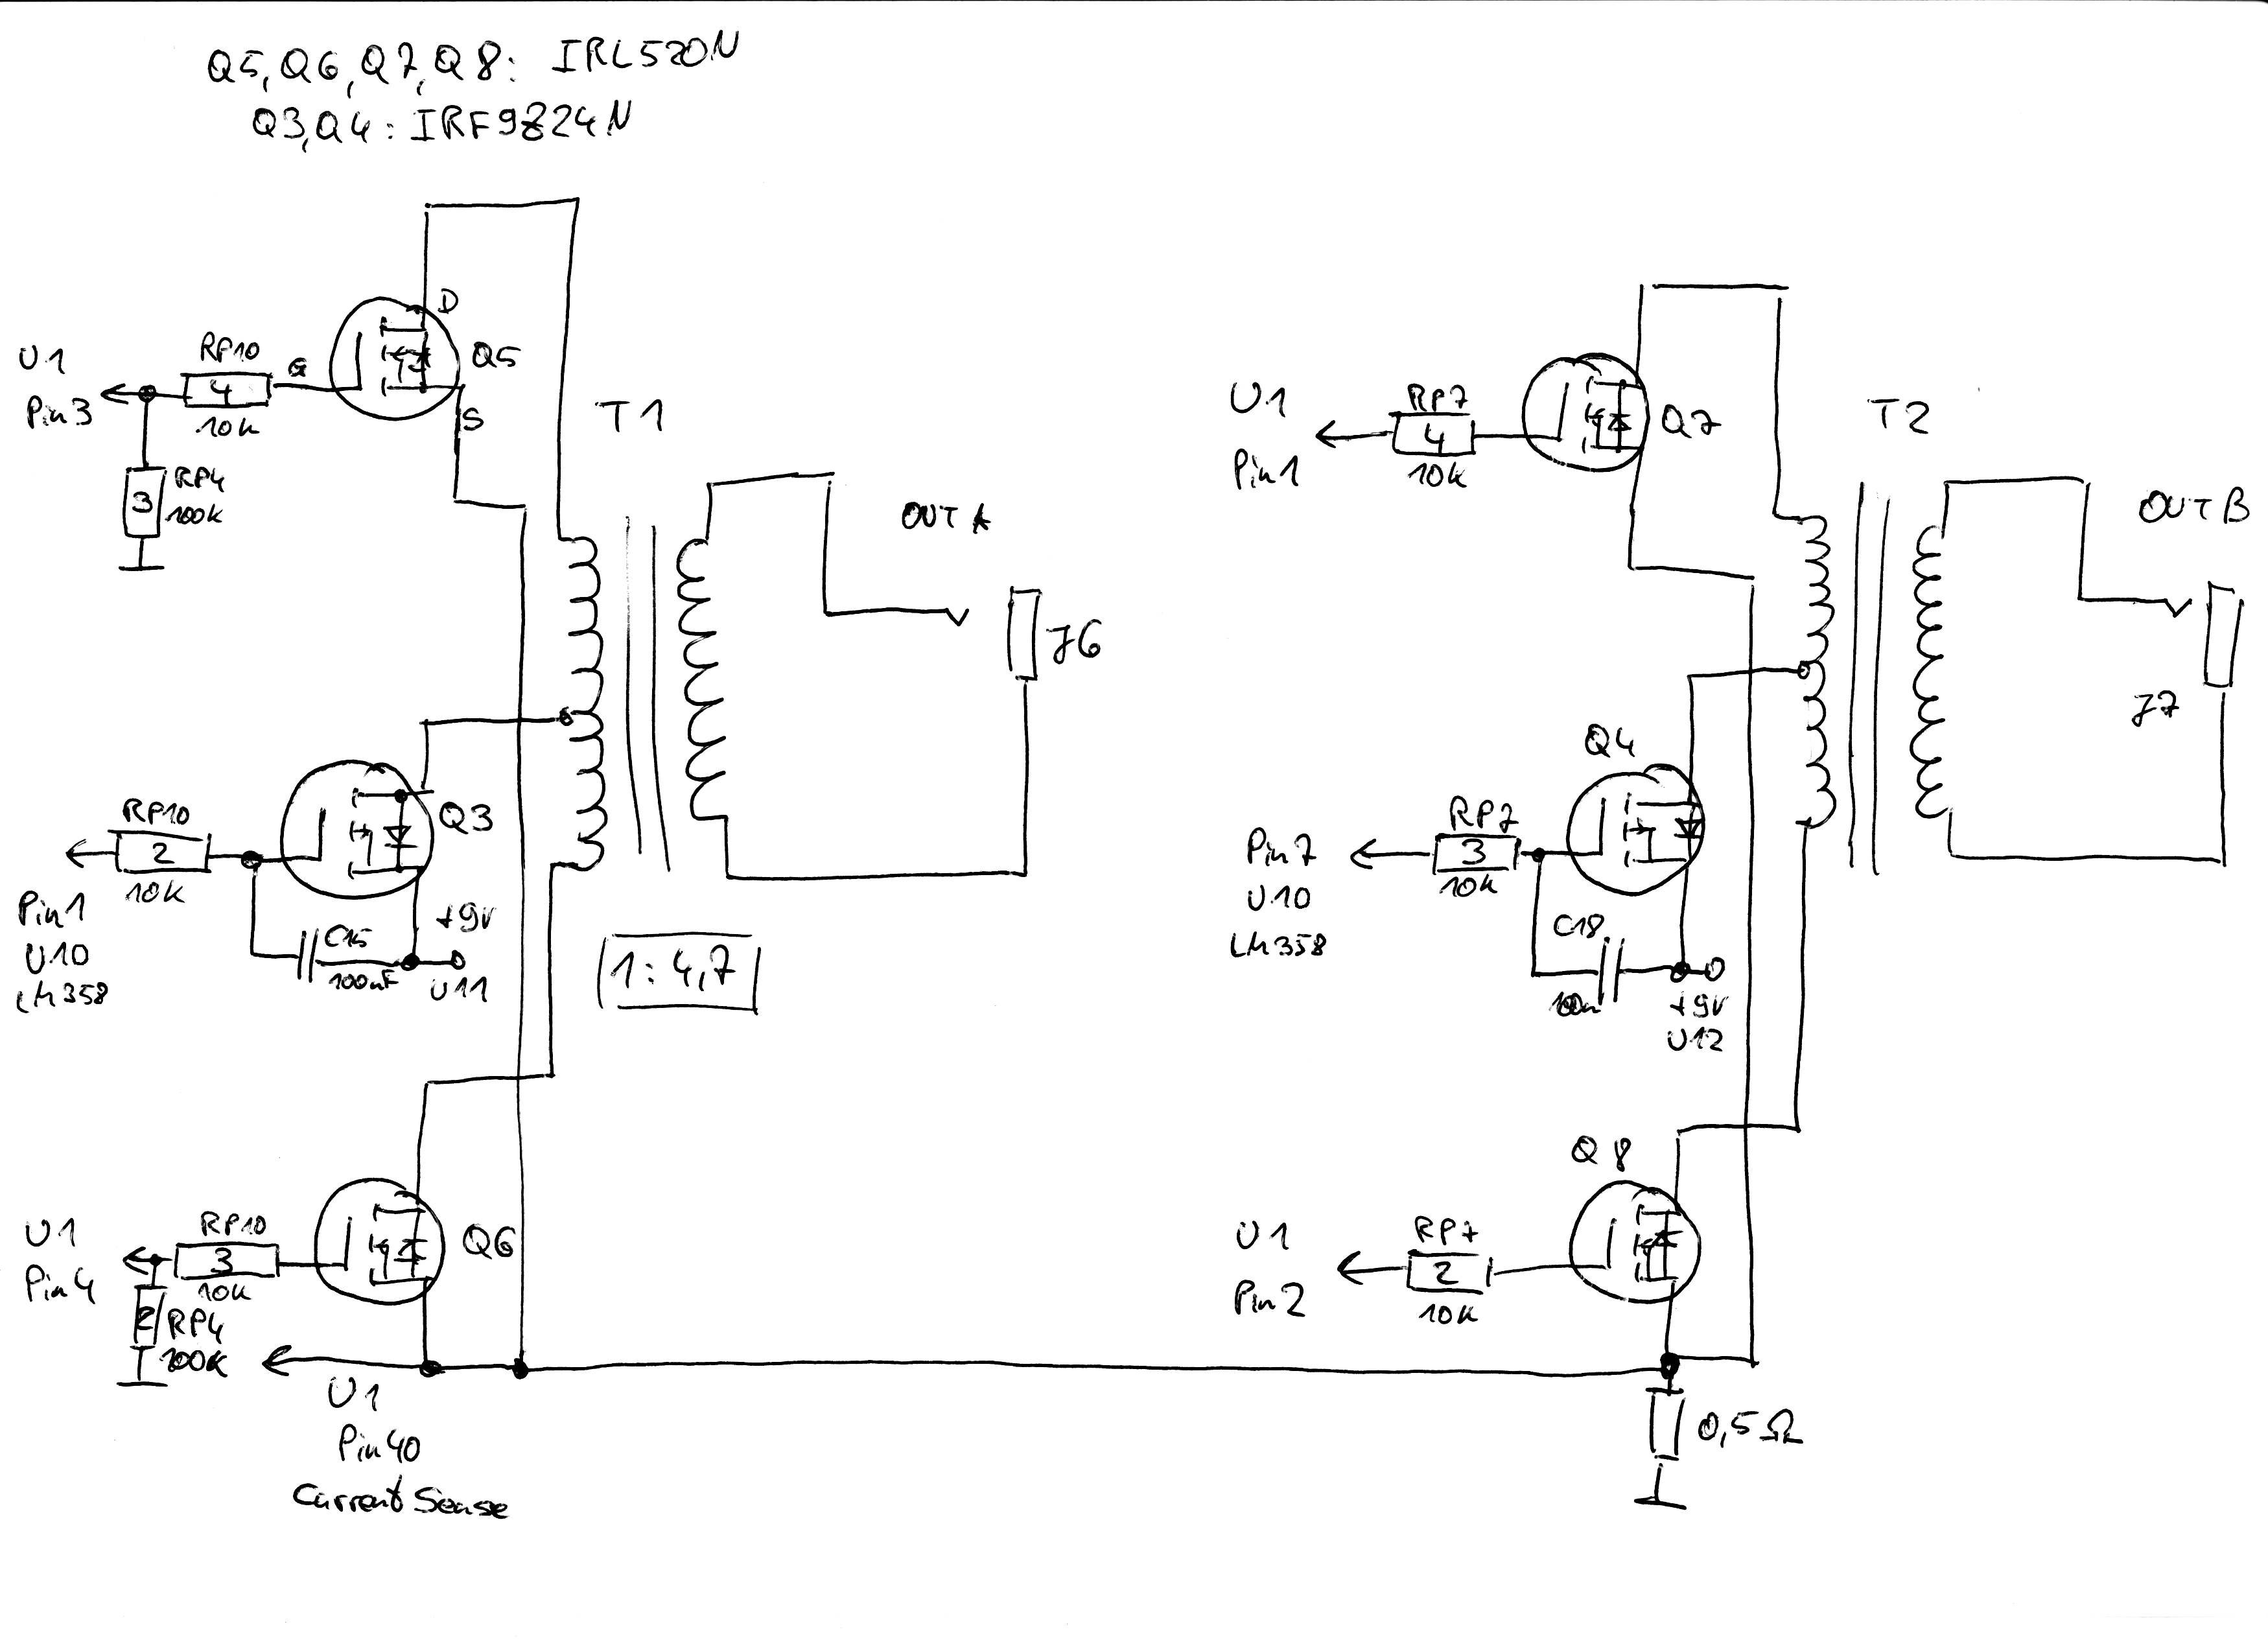 Q5, Q6, Q7, Q8: IRL520N
Q3, Q4: IRF9Z24N
D
U1
Pin3
RP10
4
10k
G
Q5
S
RP4
3
100k
T1
OUT A
J6
RP10
2
10k
Pin1
U10
LM358
Q3
C15
100nF
+9V
U11
1:4,7
U1
Pin4
RP10
3
10k
Q6
2
RP4
100k
U1
Pin40
Current Sense
U1
Pin1
RP7
4
10k
Q7
T2
OUT B
J7
Q4
RP7
3
10k
Pin7
U10
LM358
C18
100n
+9V
U12
Q8
U1
Pin2
RP7
2
10k
0,5Ω